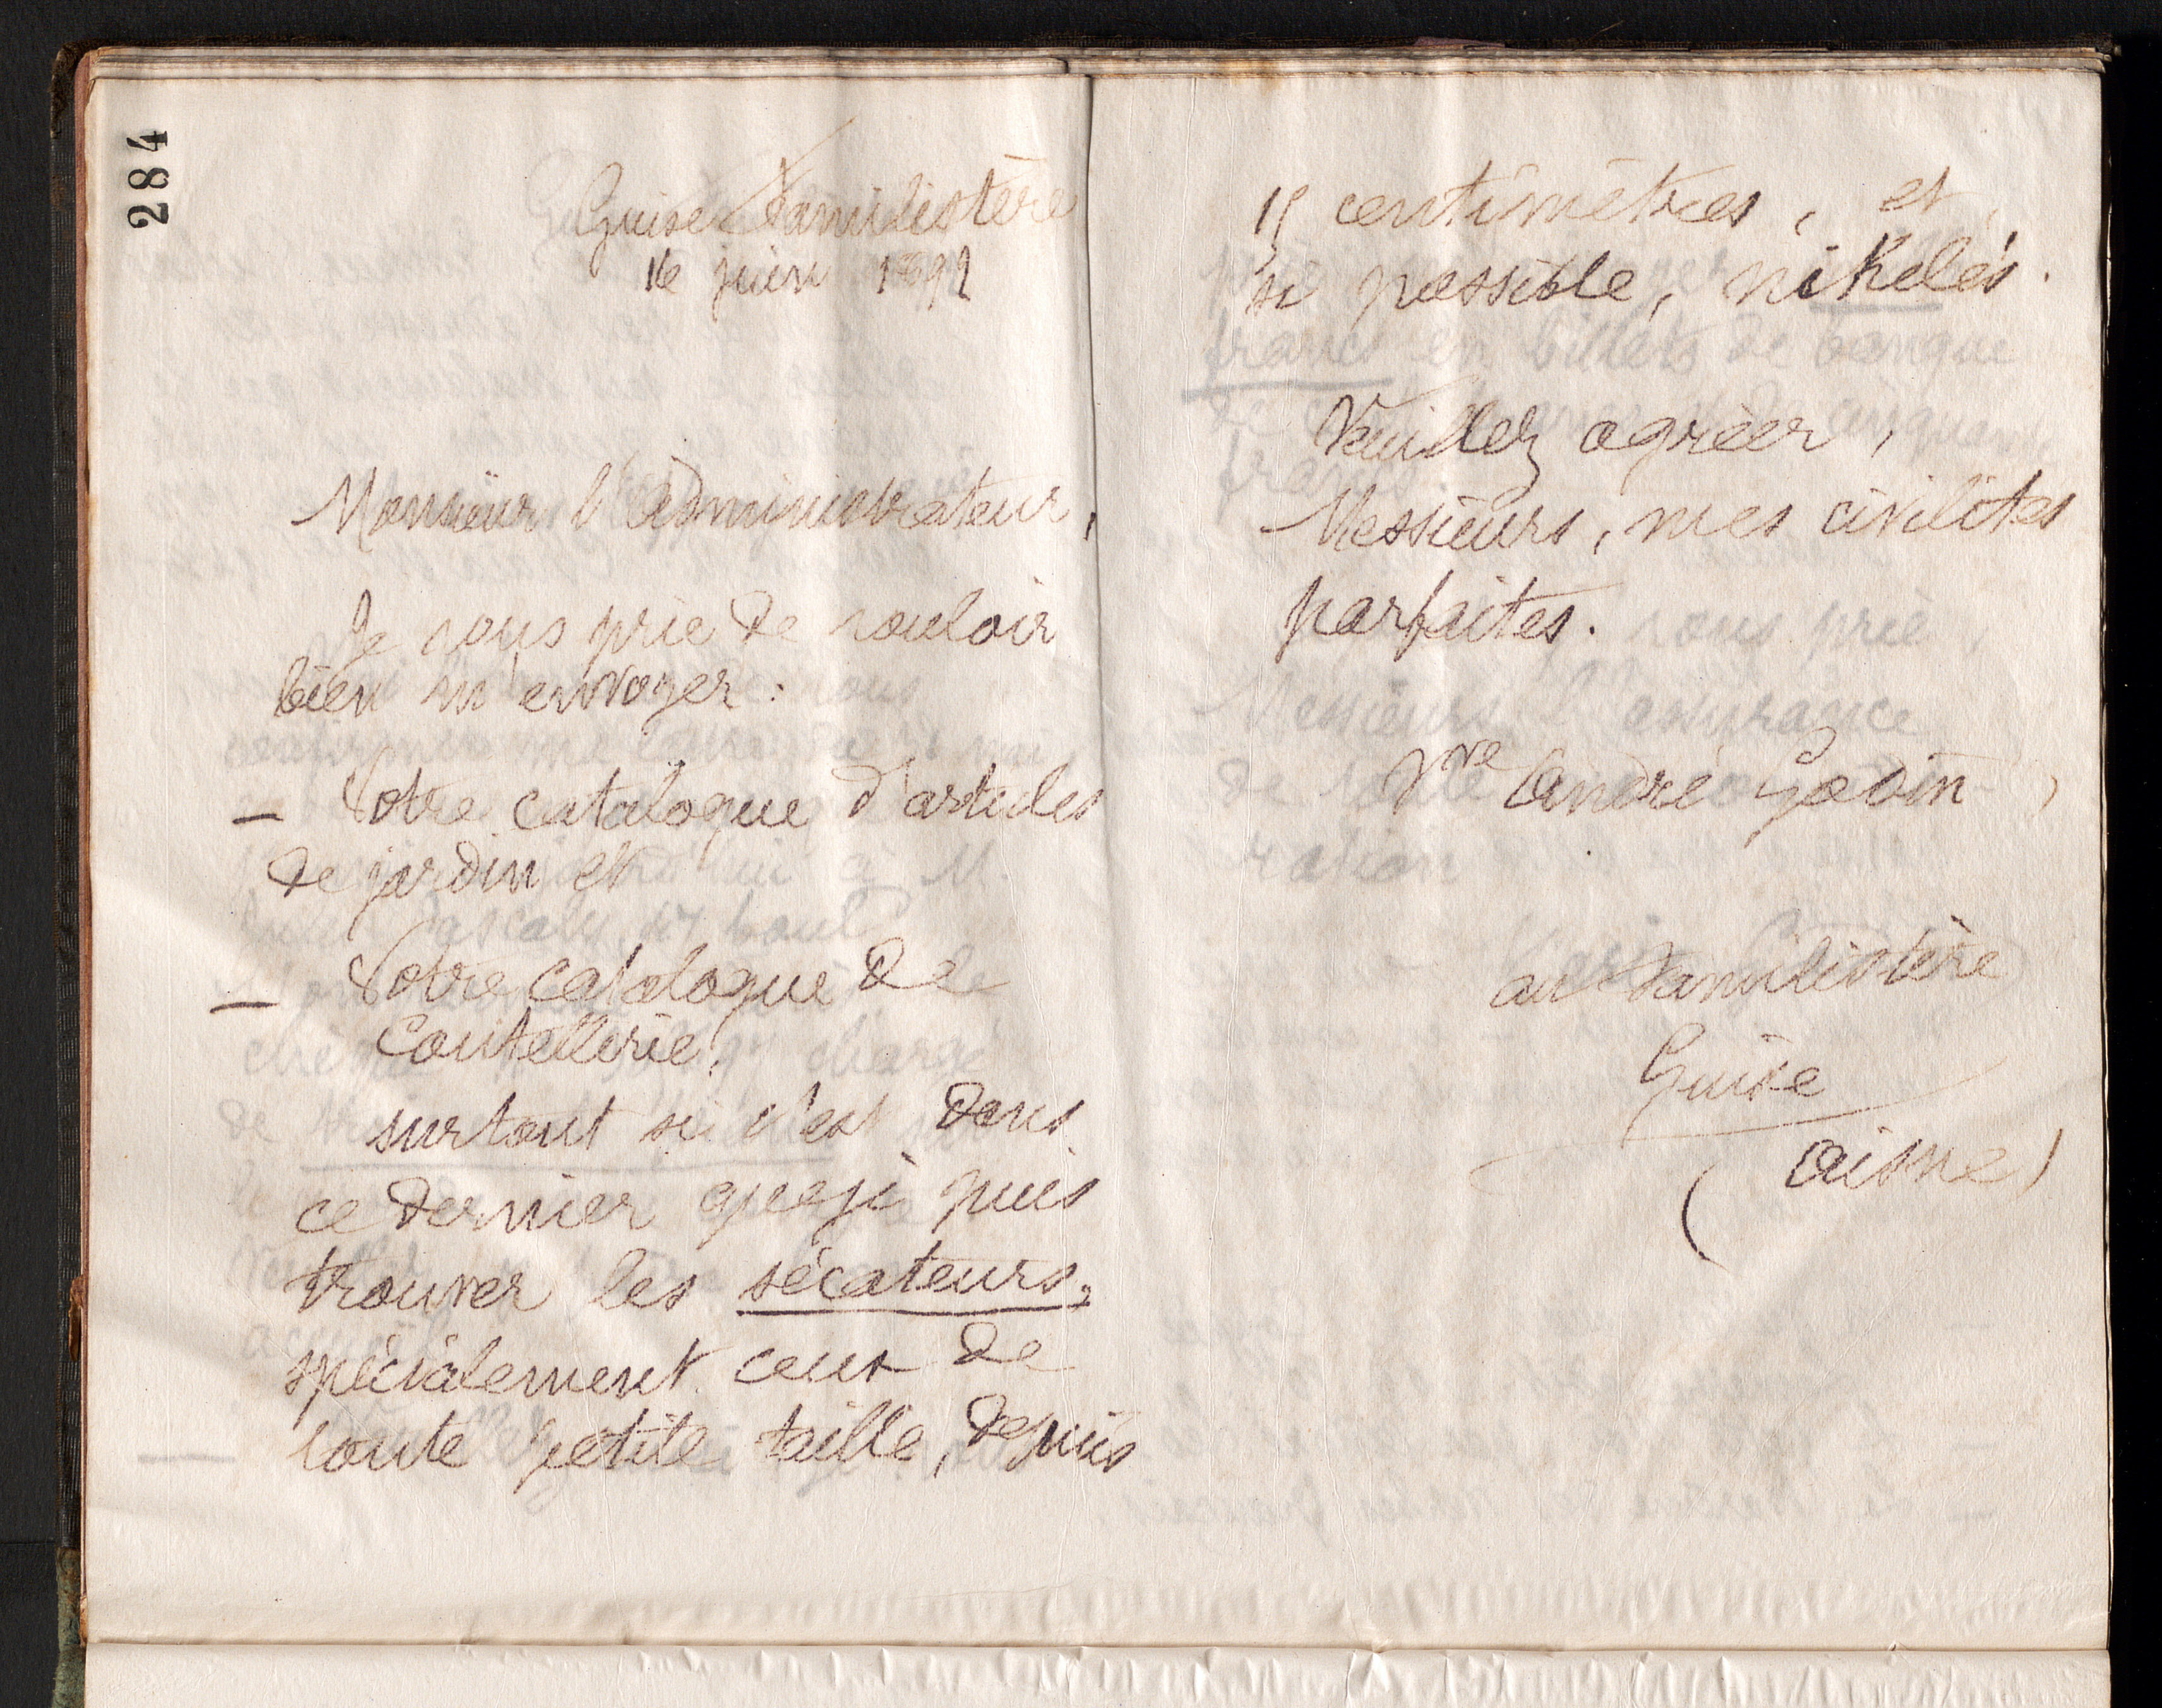 284
Guise Familistère
16 juin 1892
Monsieur l'administrateur,
Je vous prie de vouloir
bien m'envoyer :
— Votre catalogue d'articles
de jardin et
— Votre catalogue de
Coutellerie,
surtout si c'est dans
ce dernier que je puis
trouver les sécateurs,
spécialement ceux de
toute petite taille, depuis
15 centimètres, et,
si possible, nikelés.
Veuillez agréer,
Messieurs, mes civilités
parfaites.
Vve André Godin
au Familistère
Guise
(Aisne)